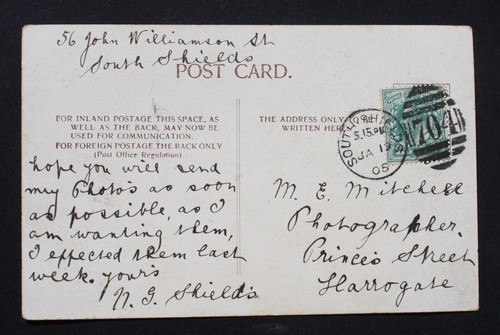 56 John Williamson St
South Shields
POST CARD.
FOR INLAND POSTAGE THIS SPACE, AS
WELL AS THE BACK, MAY NOW BE
USED FOR COMMUNICATION.
FOR FOREIGN POSTAGE THE BACK ONLY
(Post Office Regulation)
THE ADDRESS ONLY
WRITTEN HERE.
SOUTH SHIELDS
5.15 PM
JA 13
05
704
hope you will send
my Photo's as soon
as possible, as I
am wanting them,
I expected them last
week. yours
N. G. Shields
M. E. Mitchell
Photographer.
Princes Street
Harrogate